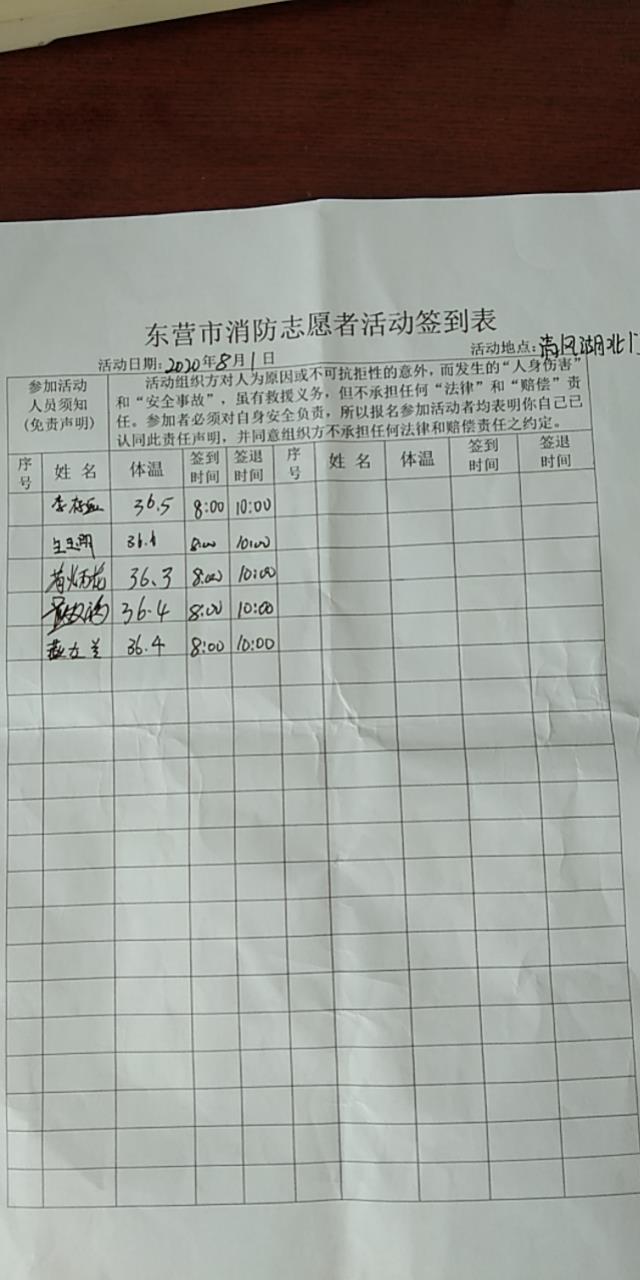 东营市消防志愿者活动签到表
活动日期:2020年8月1日 活动地点:清风湖北门
参加活动
人员须知
(免责声明)
活动组织方对人为原因或不可抗拒性的意外,而发生的“人身伤害”
和“安全事故”,虽有救援义务,但不承担任何“法律”和“赔偿”责
任。参加者必须对自身安全负责,所以报名参加活动者均表明你自己已
认同此责任声明,并同意组织方不承担任何法律和赔偿责任之约定。
序号 姓名 体温 签到时间 签退时间 序号 姓名 体温 签到时间 签退时间
36.5 8:00 10:00
8:00 10:00
36.3 8:00 10:00
36.4 8:00 10:00
36.4 8:00 10:00